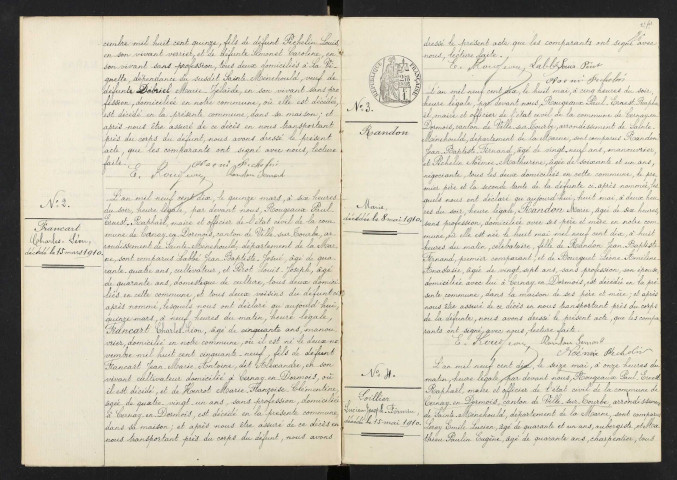 cembre mil huit cent quinze, fils de défunt Pichelin Louis
en son vivant verrier, et de défunte Simonet Caroline, en
son vivant sans profession, tous deux domiciliés à la
dépendance du susdit Sainte Menehould, veuf de
défunte Dabriel Marie en son vivant sans pro-
fession, domiciliée en notre commune, où elle est décédée,
est décédé en la présente commune, dans sa maison; et
après nous être assuré de ce décès en nous transportant
près du corps du défunt, nous avons dressé le présent
acte, que les comparants ont signé avec nous, lecture
faite.
Noémi Pichelin
Randon Fernand
N° 2.
Francart
Charles-Léon,
décédé le 15 mars 1910.
L'an mil neuf cent dix, le quinze mars, à six heures
du soir, heure légale, par devant nous, Rougeaux Paul
Ernest Raphaël, maire et officier de l'état civil de la com-
mune de Cernay en Dormois, canton de Ville sur Tourbe, ar-
rondissement de Sainte Menehould, département de la Mar-
ne, sont comparus Labbé Jean Baptiste Josué, âgé de qua-
rante quatre ans, cultivateur, et Pirot Louis Joseph, âgé
de quarante ans, domestique de culture, tous deux domici-
liés en cette commune, et tous deux voisins du défunt ci-
après nommé, lesquels nous ont déclaré qu'aujourd'hui
quinze mars, à neuf heures du matin, heure légale,
Francart Charles Léon, âgé de cinquante ans, manou-
vrier, domicilié en notre commune, où il est né le deux no-
vembre mil huit cent cinquante-neuf, fils de défunt
Francart Jean Marie Antoine, dit Alexandre, en son
vivant cultivateur domicilié à Cernay en Dormois, où
il est décédé, et de Henrot Marie Françoise Clémentine
âgée de quatre-vingt-un ans, sans profession, domiciliée
à Cernay en Dormois, est décédé en la présente commune
dans sa maison; et après nous être assuré de ce décès en
nous transportant près du corps du défunt, nous avons
dressé le présent acte que les comparants ont signé avec
nous, lecture faite.
Labbé Josué Pirot
Noémi Pichelin
N° 3.
Randon
Marie,
décédée le 8 mai 1910.
L'an mil neuf cent dix, le huit mai, à cinq heures du soir,
heure légale, par devant nous, Rougeaux Paul Ernest Rapha-
ël, maire et officier de l'état civil de la commune de Cernay en
Dormois, canton de Ville sur Tourbe, arrondissement de Sainte
Menehould, département de la Marne, sont comparus Randon
Jean Baptiste Fernand, âgé de vingt-neuf ans, manouvrier,
et Pichelin Noémie Mathurine, âgée de soixante et un ans,
tous les deux domiciliés en cette commune, le pre-
mier père et la seconde tante de la défunte ci-après nommée, les-
quels nous ont déclaré qu'aujourd'hui, huit mai, à deux heu-
res du soir, heure légale, Randon Marie, âgée de six heures,
sans profession, domiciliée avec ses père et mère en notre com-
mune, où elle est née le huit mai mil neuf cent dix, à huit
heures du matin, célibataire, fille de Randon Jean Baptiste
Fernand, premier comparant, et de
âgée de vingt sept ans, sans profession, son épouse,
domiciliée avec lui à Cernay en Dormois, est décédée en la pré-
sente commune, dans la maison de ses père et mère; et après
nous être assuré de ce décès en nous transportant près du corps
de la défunte, nous avons dressé le présent acte, que les compa-
rants ont signé, avec nous, lecture faite.
Randon Fernand
Noémie Pichelin
N° 4.
Lucien Joseph
décédé le 15 mai 1910.
L'an mil neuf cent dix, le seize mai, à onze heures du
matin, heure légale, par devant nous, Rougeaux Paul Ernest
Raphaël, maire et officier de l'état civil de la commune de
Cernay en Dormois, canton de Ville sur Tourbe, arrondissement
de Sainte Menehould, département de la Marne, sont comparus
Leroy Emile Lucien, âgé de quarante et un ans, aubergiste, et Ma-
thieu Paulin Eugène, âgé de quarante ans, charpentier, tous